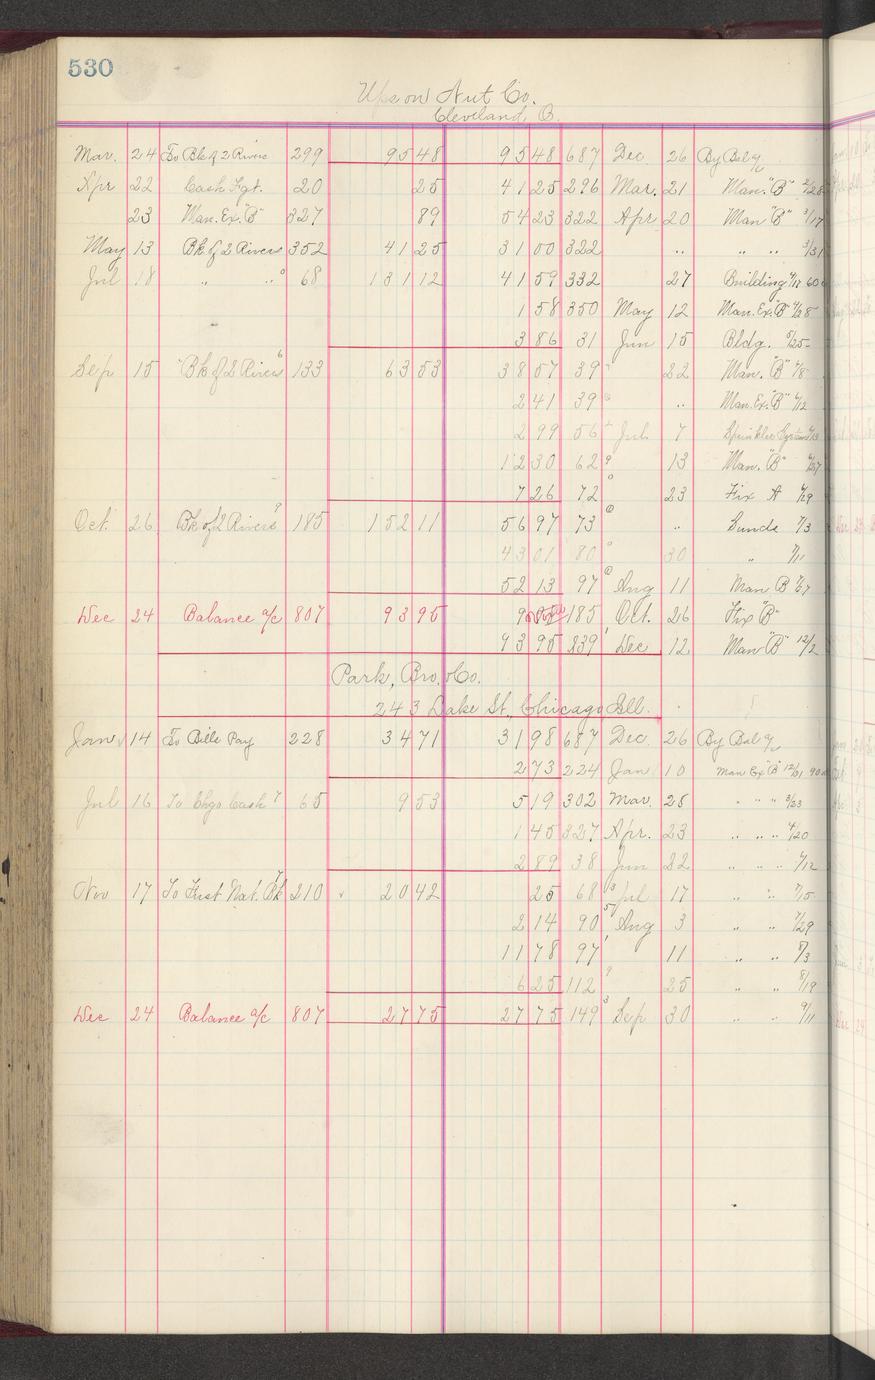 530
Upson Nut Co.
Cleveland O.
Mar. 24 To Bk of 2 Rivers 299 95 48 95 48 687 Dec. 26 By Bal a/c
Apr 22 Cash Fgt. 20 25 41 25 296 Mar. 21 Man. "B" 2/28
23 Man. Ex. "B" 327 89 54 23 322 Apr 20 Man "B" 3/17
May 13 Bk of 2 Rivers 352 41 25 31 00 322 " " " 3/31
Jul 18 " " 68 131 12 41 59 332 27 Building 4/17 60
1 58 350 May 12 Man. Ex. "B" 4/28
3 86 31 Jun 15 Bldg. 5/25
Sep 15 Bk of 2 Rivers 133 63 53 38 57 39 22 Man. "B" 6/8
2 41 39 " Man. Ex. "B" 6/12
2 99 56 Jul 7 Sprinkler System
12 30 62 13 Man. "B" 6/27
7 26 72 23 Fix A 6/29
Oct. 26 Bk of 2 Rivers 185 152 11 56 97 73 " Sunds 7/3
43 01 80 30 " 7/11
52 13 97 Aug 11 Man B 7/27
Dec 24 Balance a/c 807 93 95 185 Oct. 26 Fix "B"
93 95 239 Dec 12 Man "B" 12/2
Park, Bro. & Co.
243 Lake St., Chicago Ill.
Jan 14 To Bills Pay 228 34 71 31 98 687 Dec. 26 By Bal a/c
2 73 224 Jan 10 Man Ex "B" 12/31 90
Jul 16 To Chgo Cash 65 9 53 5 19 302 Mar. 28 " " " 3/23
1 45 327 Apr. 23 " " " 4/20
2 89 38 Jun 22 " " " 6/12
Nov 17 To First Nat. Bk 210 20 42 25 68 Jul 17 " " 7/15
2 14 90 Aug 3 " " 7/29
11 78 97 11 " " 8/3
6 25 112 25 " " 8/19
Dec 24 Balance a/c 807 27 75 27 75 149 Sep 30 " " 9/11